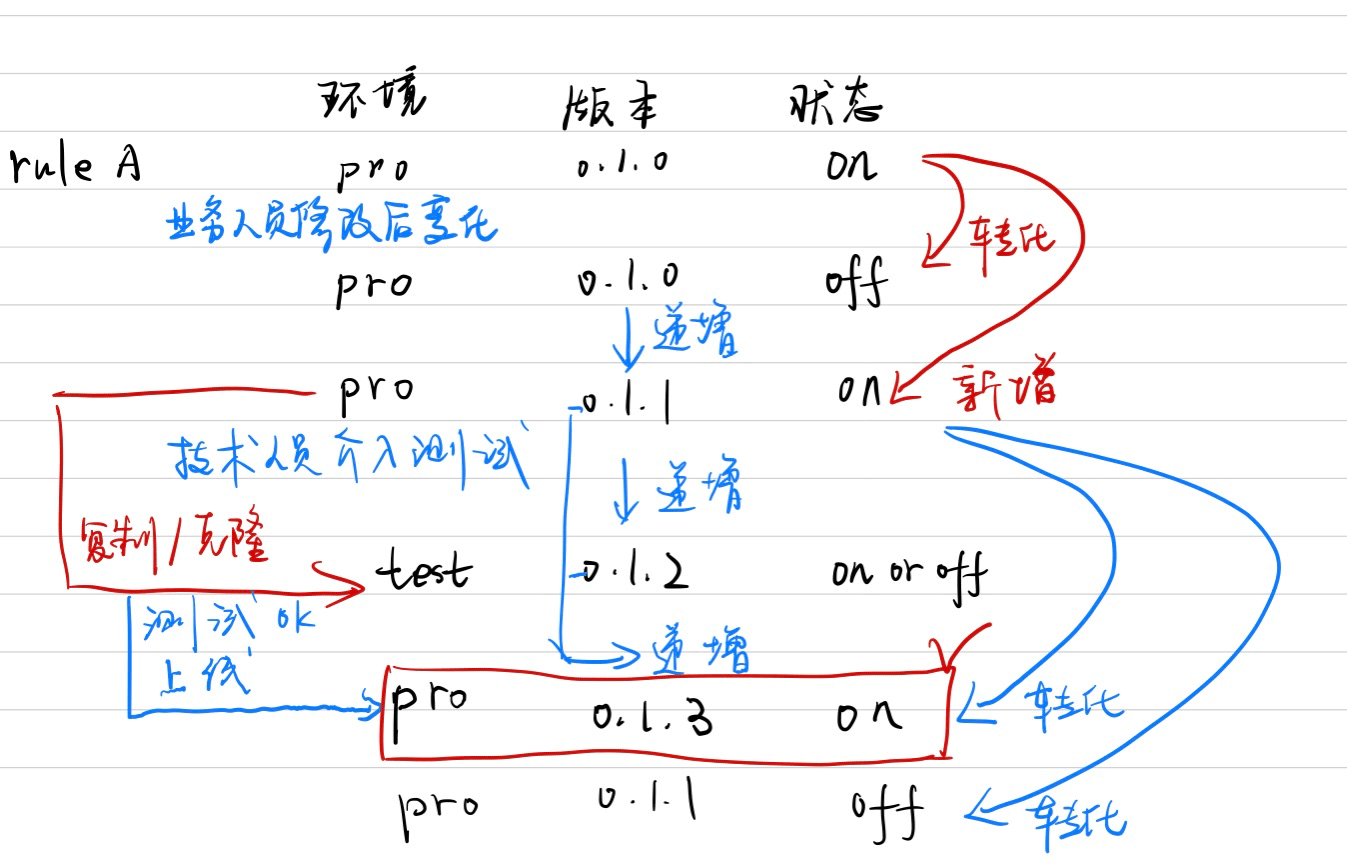 环境 版本 状态
rule A pro 0.1.0 on
业务人员修改后变化
转化
pro 0.1.0 off
递增
pro 0.1.1 on 新增
技术人员介入测试
递增
复制/克隆
test 0.1.2 on or off
测试ok
上线
递增
pro 0.1.3 on 转化
pro 0.1.1 off 转化